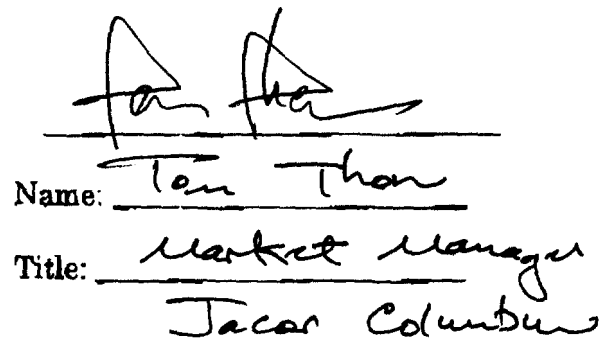 Name: Tom Thon
Title: Market Manager
Jacor Columbus